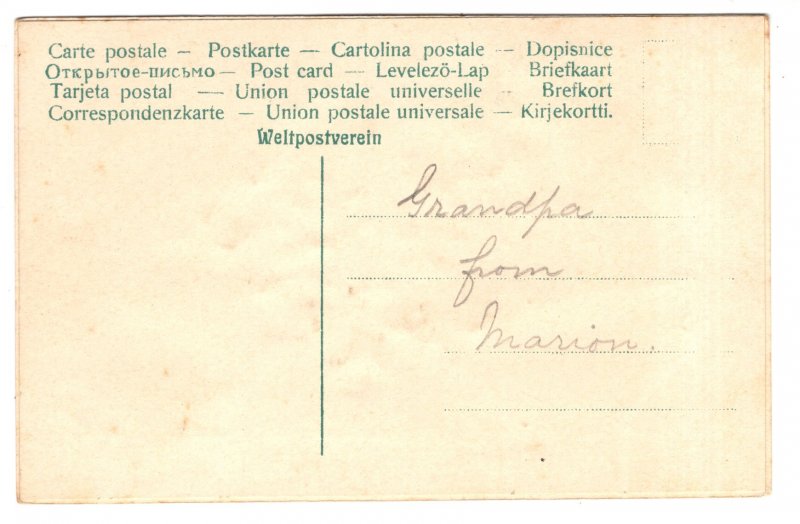 Carte postale – Postkarte — Cartolina postale – Dopisnice
Открытое-письмо – Post card — Levelező-Lap Briefkaart
Tarjeta postal — Union postale universelle – Brefkort
Correspondenzkarte – Union postale universale – Kirjekortti.
Weltpostverein
Grandpa
from
Marion.